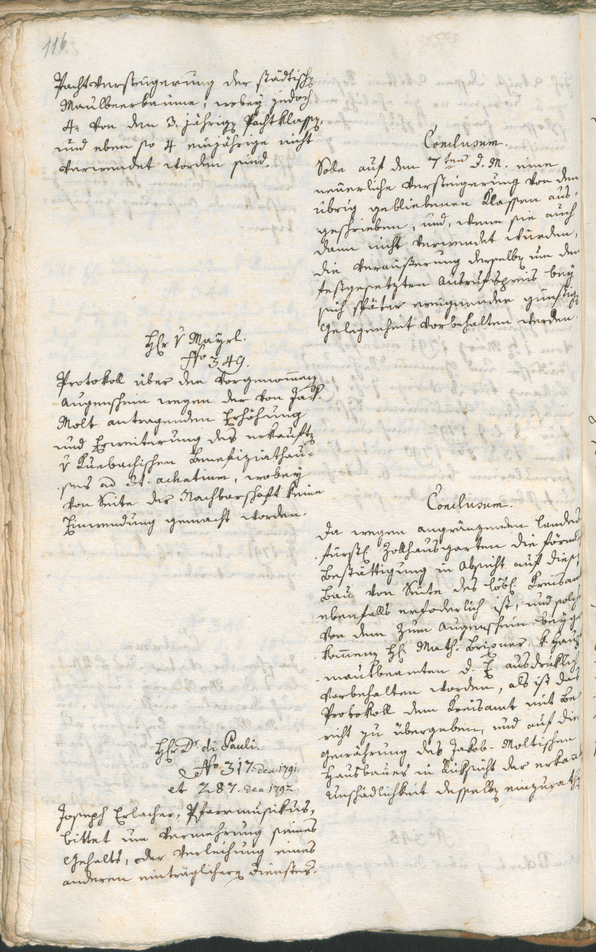 116.
Pachtversteigerung der städtisch
Maulbeerbäume, wobey jedoch
4. von den 3. jährig Pachtklass,
und eben so 4 einjährige nicht
verwendet worden sind.
Conclusum.
Solle auf den 7ten d. M. eine
neuerliche Versteigerung von den
übrig gebliebenen Klassen aus-
geschrieben, und, wenn sie auch
dann nicht verwendet wurden,
die Veräußerung derselb um den
festgesetzten Ausrufspreis bey
sich später ereignender günstig
Gelegenheit vorbehalten werden.
H v Mayrl.
No 349.
Protokoll über den vorgenommen
Augenschein wegen der von Jak.
Molt antragenden Erhöhung
und Erweiterung des erkauft
v Kuebachischen Benefiziathau-
ses ad St. achatium, wobey
von Seite der Nachbarschaft keine
Einwendung gemacht worden.
Conclusum.
Da wegen angränzenden Landes
fürstl Zollhausgarten die
Bestättigung in Absicht auf dies
Bau von Seite des löbl Kreisam
ebenfalls erfoderlich ist, und solch
von dem zum Augenschein
kommen H Math.
mautbeamten d. E ausdrüklich
vorbehalten worden, als ist das
Protokoll dem Kreisamt mit Be
richt zu übergeben, und auf die
Gewährung des Jakob Moltischen
Hausbaues in Rüksicht der erkan
Unshädlichkeit desselb einzurath
H Dr di Pauli.
No 317. den 1791.
et 287. den 1792.
Joseph Erlacher, Pfarrmusikus,
bittet um Vermehrung seines
Gehalts, oder Verleihung eines
anderen einträglichern Dienstes.